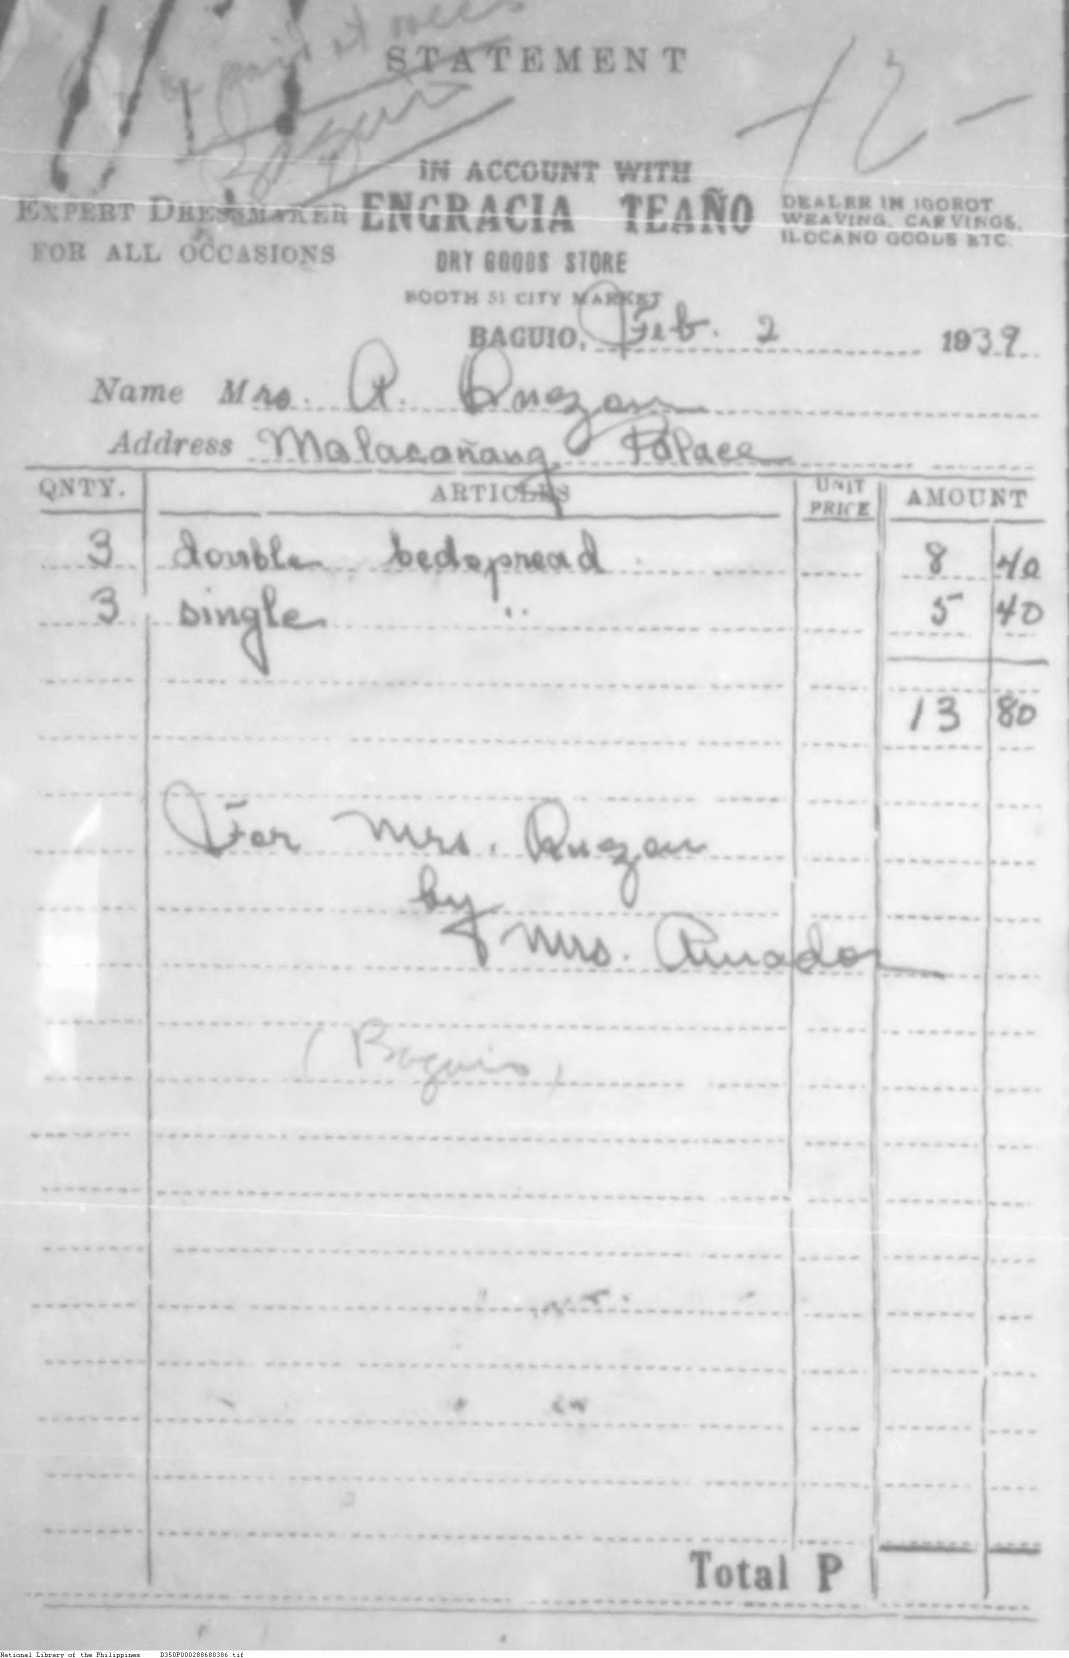 paid at
STATEMENT
-12-
IN ACCOUNT WITH
EXPERT DRESSMAKER
FOR ALL OCCASIONS
ENGRACIA TEAÑO
DEALER IN IGOROT
WEAVING, CARVINGS,
ILOCANO GOODS ETC.
DRY GOODS STORE
BOOTH 51 CITY MARKET
BAGUIO, Feb. 2 1939
Name Mrs. A. Quezon
Address Malacañang Palace
QNTY. ARTICLES UNIT PRICE AMOUNT
3 double bedspread 8 40
3 single " 5 40
13 80
For Mrs. Quezon
by
Mrs. Amador
(Baguio)
Total P
National Library of the Philippines D350P000288680386.tif